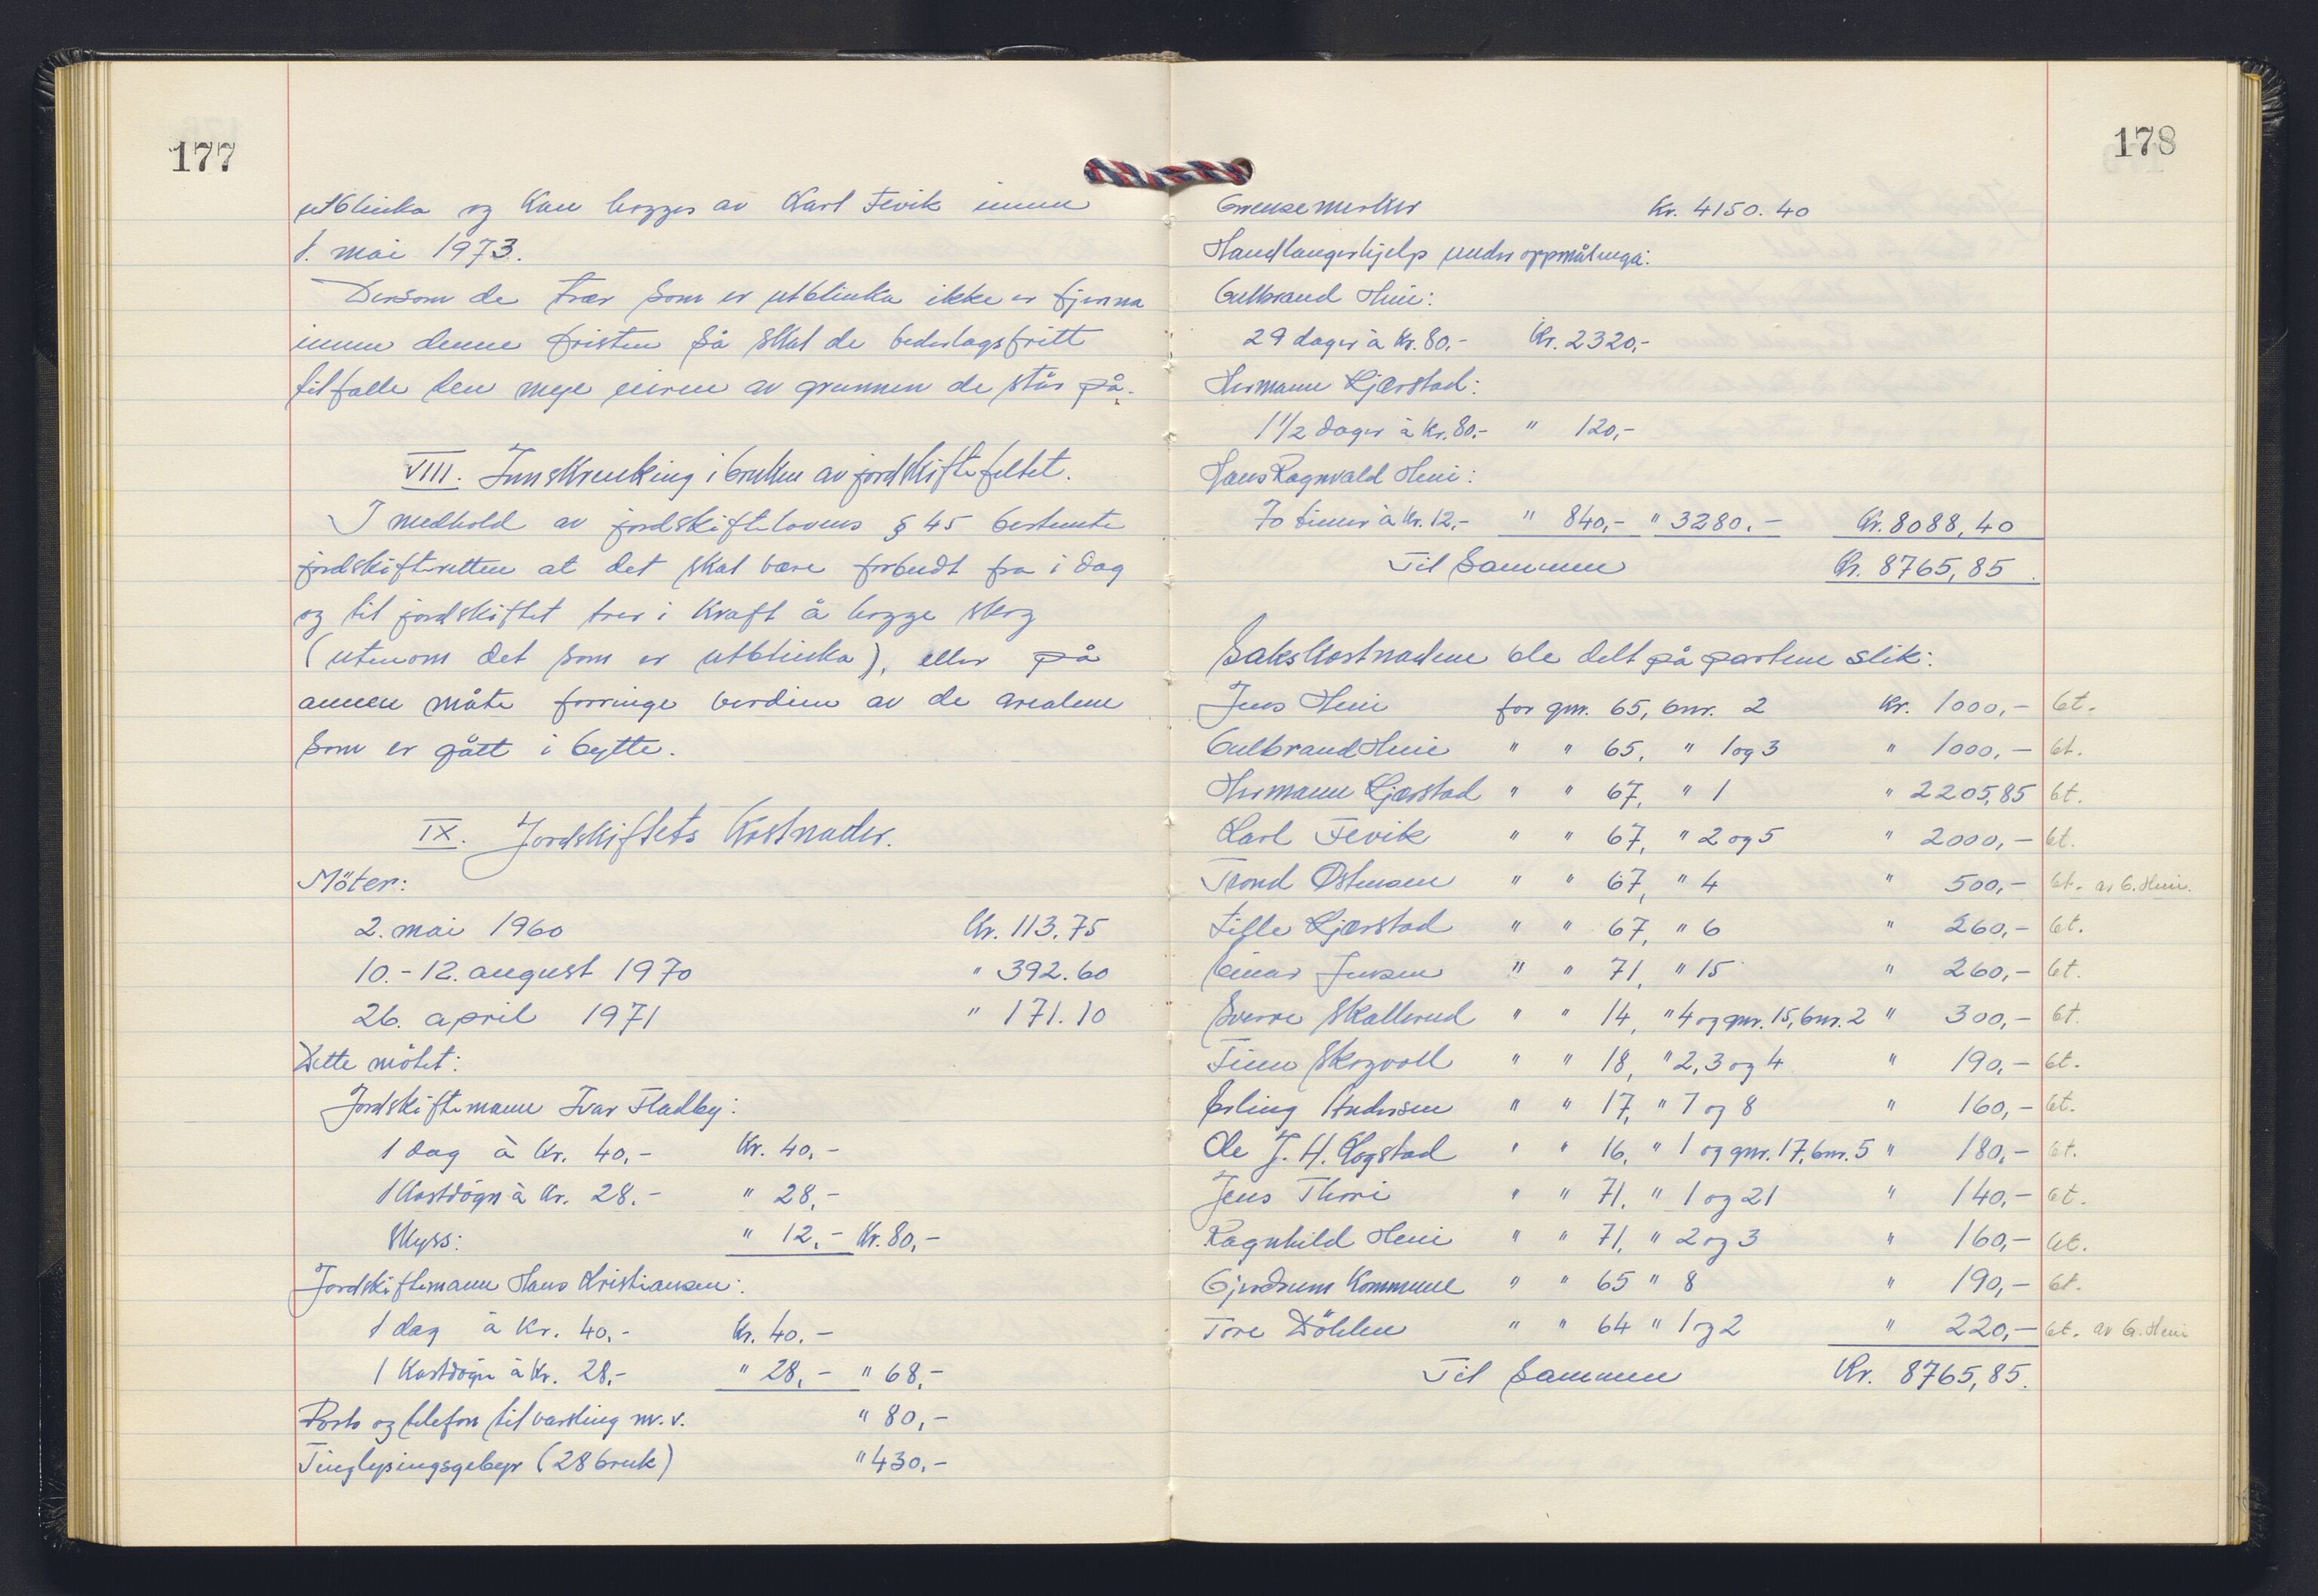 177
utblinka og kan hogges av Karl Fevik innen
1. mai 1973.
Dersom de trær som er utblinka ikke er fjerna
innen denne fristen så skal de vederlagsfritt
tilfalle den nye eieren av grunnen de står på.
VIII. Innskrenking i bruken av jordskiftefeltet.
I medhold av jordskiftelovens § 45 bestemte
jordskifteretten at det skal være forbudt fra i dag
og til jordskiftet trer i kraft å hogge skog
(utenom det som er utblinka), eller på
annen måte forringe verdien av de arealene
som er gått i bytte.
IX. Jordskiftets kostnader.
Möter:
2. mai 1960 Kr. 113.75
10.-12. august 1970 " 392.60
26. april 1971 " 171.10
Dette mötet:
Jordskiftemann Ivar Fladby:
1 dag à kr. 40,- Kr. 40,-
1 kostdögn à kr. 28.- " 28,-
Skyss: " 12,- Kr. 80,-
Jordskiftemann Hans Kristiansen:
1 dag à kr. 40,- Kr. 40.-
1 kostdögn à kr. 28,- " 28,- " 68,-
Porto og telefon til varsling m.v. " 80,-
Tinglysingsgebyr (28 bruk) " 430,-
178
Grensemerker Kr. 4150.40
Handlangerhjelp under oppmålinga:
Gulbrand Heni:
29 dager à kr. 80,- Kr. 2320,-
Hermann Kjærstad:
1 1/2 dager à kr. 80,- " 120,-
Hans Ragnvald Heni:
70 timer à kr. 12,- " 840,- " 3280.- Kr. 8088,40
Til sammen Kr. 8765,85.
Sakskostnadene ble delt på partene slik:
Jens Heni for gnr. 65, bnr. 2 Kr. 1000,- bt.
Gulbrand Heni " " 65, " 1 og 3 " 1000,- bt.
Hermann Kjærstad " " 67, " 1 " 2205,85 bt.
Karl Fevik " " 67, " 2 og 5 " 2000,- bt.
Trond Østensen " " 67, " 4 " 500,- bt. av G. Heni.
Kjærstad " " 67, " 6 " 260,- bt.
Einar Jensen " " 71, " 15 " 260,- bt.
Sverre Skallerud " " 14, " 4 og gnr. 15, bnr. 2 " 300,- bt.
Finn Skogvoll " " 18, " 2, 3 og 4 " 190,- bt.
Erling Andersen " " 17, " 7 og 8 " 160,- bt.
Ole J. H. Kogstad " " 16, " 1 og gnr. 17, bnr. 5 " 180,- bt.
Jens Thori " " 71, " 1 og 21 " 140,- bt.
Ragnhild Heni " " 71, " 2 og 3 " 160,- bt.
Gjerdrum Kommune " " 65 " 8 " 190,- bt.
Tore Döhlen " " 64 " 1 og 2 " 220,- bt. av G. Heni
Til sammen Kr. 8765,85.